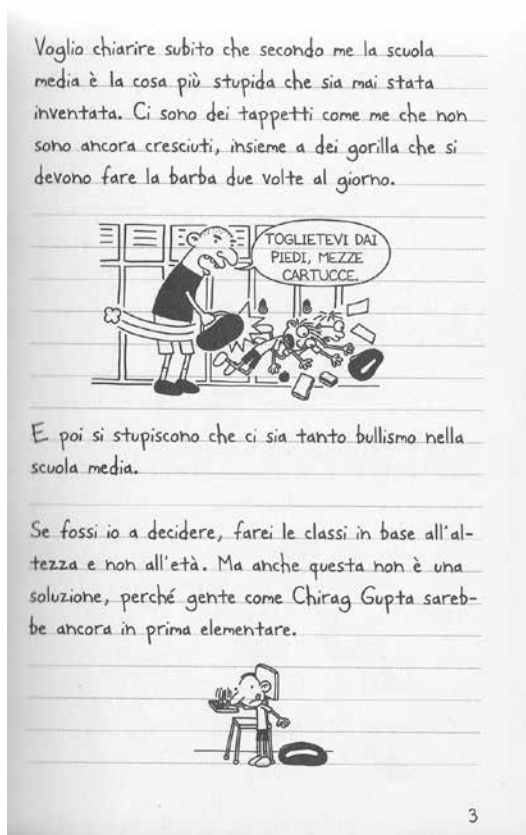 Voglio chiarire subito che secondo me la scuola
media è la cosa più stupida che sia mai stata
inventata. Ci sono dei tappetti come me che non
sono ancora cresciuti, insieme a dei gorilla che si
devono fare la barba due volte al giorno.
TOGLIETEVI DAI
PIEDI, MEZZE
CARTUCCE.
E poi si stupiscono che ci sia tanto bullismo nella
scuola media.
Se fossi io a decidere, farei le classi in base all'al-
tezza e non all'età. Ma anche questa non è una
soluzione, perché gente come Chirag Gupta sareb-
be ancora in prima elementare.
3